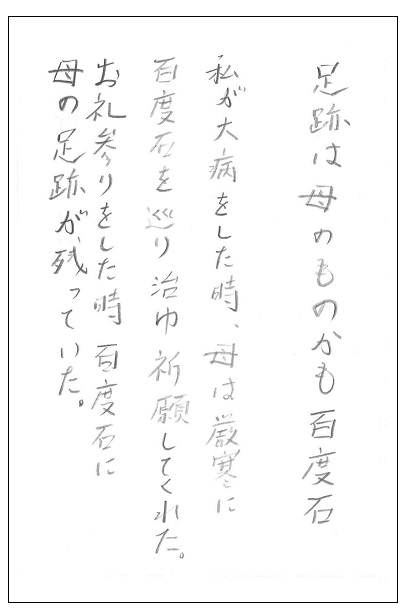 足跡は母のものかも百度石
私が大病をした時、母は厳寒に
百度石を巡り治ゆ祈願してくれた。
お礼参りをした時 百度石に
母の足跡が残っていた。